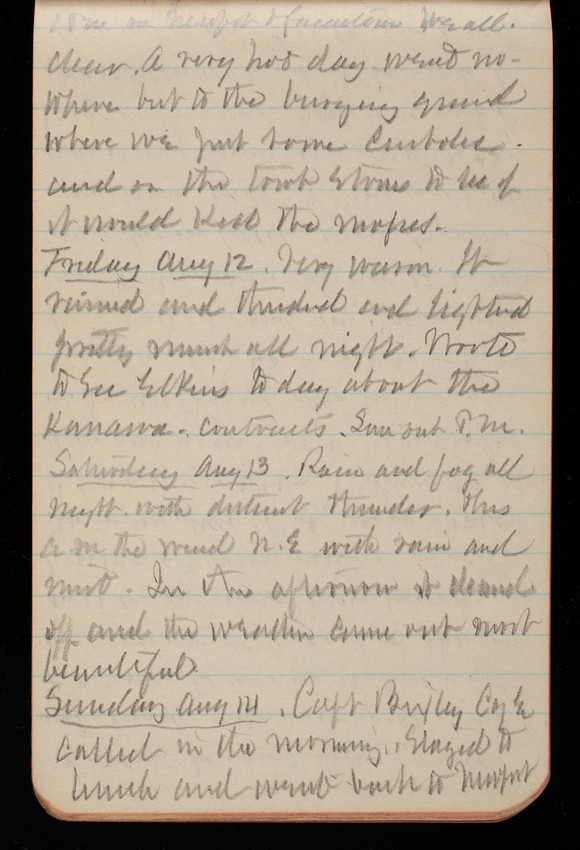 clear. A very hot day went no-
where but to the burying ground
where we put some Carbolic
and on the tomb stones to see if
it would kill the mosses.
Friday Aug 12. Very warm. It
rained and thundered and lightned
pretty much all night. Wrote
to Sec Elkins today about the
Kanawa contracts. Sun out P.M.
Saturday Aug 13. Rain and fog all
night with distant thunder. This
a m the wind N.E with rain and
mist. In the afternoon it cleared
off and the weather came out most
beautiful
Sunday Aug 14. Capt Bixby Cog E
called in the morning. Stayed to
lunch and went back to Newport